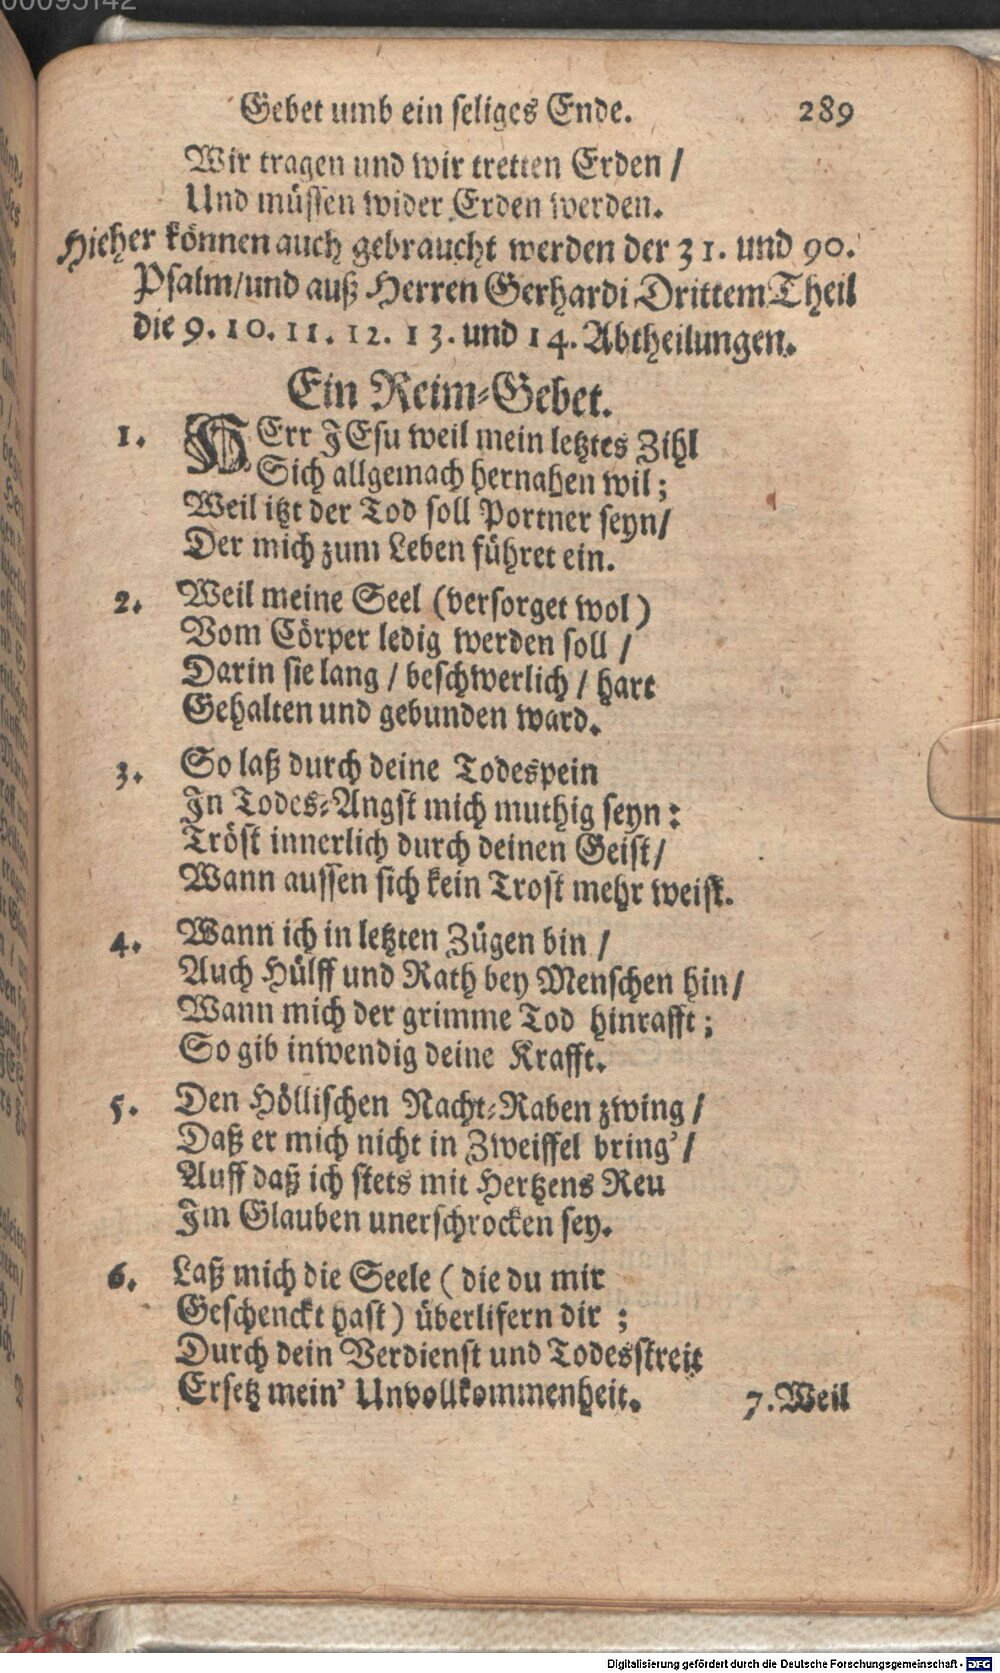 00095142
Gebet umb ein seliges Ende. 289
Wir tragen und wir tretten Erden /
Und müssen wider Erden werden.
Hieher können auch gebraucht werden der 31. und 90.
Psalm/und auß Herren Gerhardi Drittem Theil
die 9. 10. 11. 12. 13. und 14. Abtheilungen.
Ein Reim-Gebet.
1. HErr JEsu weil mein letztes Zihl
Sich allgemach hernahen wil;
Weil itzt der Tod soll Portner seyn/
Der mich zum Leben führet ein.
2. Weil meine Seel (versorget wol)
Vom Cörper ledig werden soll /
Darin sie lang / beschwerlich / hart
Gehalten und gebunden ward.
3. So laß durch deine Todespein
In Todes-Angst mich muthig seyn:
Tröst innerlich durch deinen Geist/
Wann aussen sich kein Trost mehr weist.
4. Wann ich in letzten Zügen bin /
Auch Hülff und Rath bey Menschen hin/
Wann mich der grimme Tod hinrafft;
So gib inwendig deine Krafft.
5. Den Höllischen Nacht-Raben zwing /
Daß er mich nicht in Zweiffel bring' /
Auff daß ich stets mit Hertzens Reu
Im Glauben unerschrocken sey.
6. Laß mich die Seele ( die du mir
Geschenckt hast ) überlifern dir ;
Durch dein Verdienst und Todesstreit
Ersetz mein' Unvollkommenheit. 7. Weil
Digitalisierung gefördert durch die Deutsche Forschungsgemeinschaft - DFG